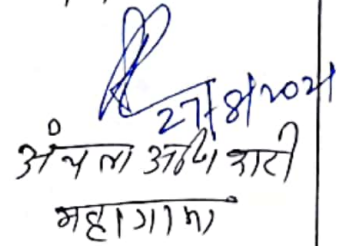 27/8/2021
अंचल अधिकारी
महागामा